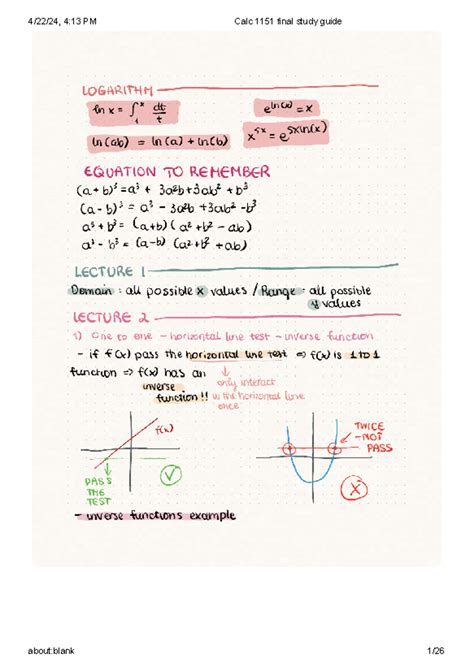 4/22/24, 4:13 PM Calc 1151 final study guide
LOGARITHM
ln x = ∫₁ˣ dt/t e^ln(x) = x
ln(ab) = ln(a) + ln(b) x^5x = e^5xln(x)
EQUATION TO REMEMBER
(a+b)³ = a³ + 3a²b + 3ab² + b³
(a-b)³ = a³ - 3a²b + 3ab² - b³
a³ + b³ = (a+b) (a² + b² - ab)
a³ - b³ = (a-b) (a² + b² + ab)
LECTURE 1
Domain : all possible x values / Range : all possible
y values
LECTURE 2
1) One to one - horizontal line test - inverse function
- if f(x) pass the horizontal line test ⇒ f(x) is 1 to 1
function ⇒ f(x) has an ↓
inverse only interact
function!! w the horizontal line
once
f(x)
PASS
THE
TEST
TWICE
- NOT
PASS
- inverse functions example
about:blank 1/26